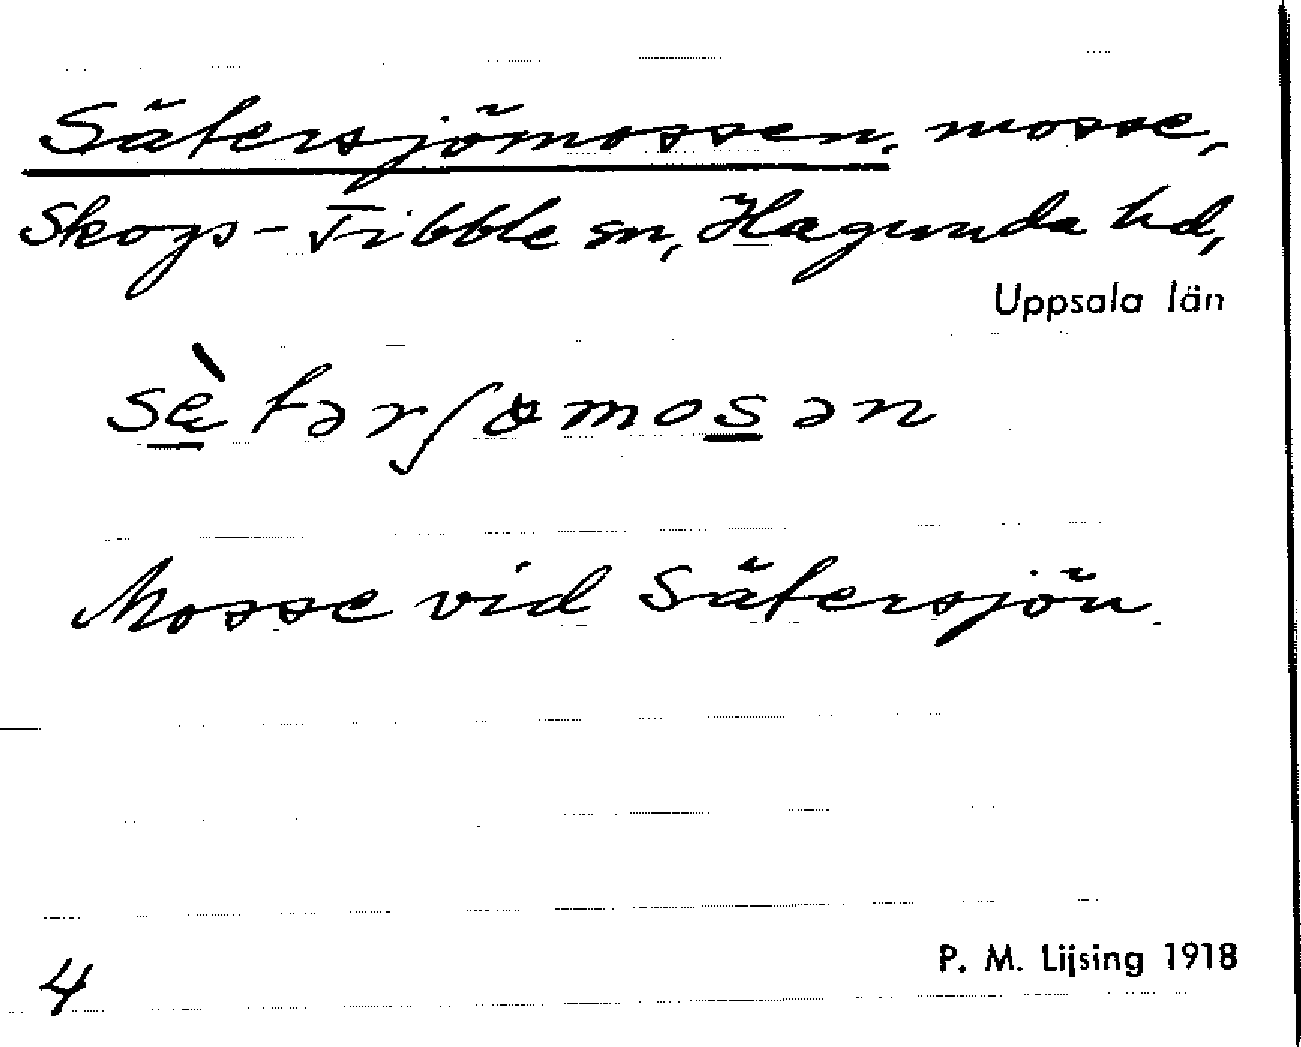 Sätersjömossen, mosse,
Skogs-Tibble sn, Hagunda hd,
Uppsala län
sè̱tərʃømos̱ən
Mosse vid Sätersjön.
4
P. M. Lijsing 1918